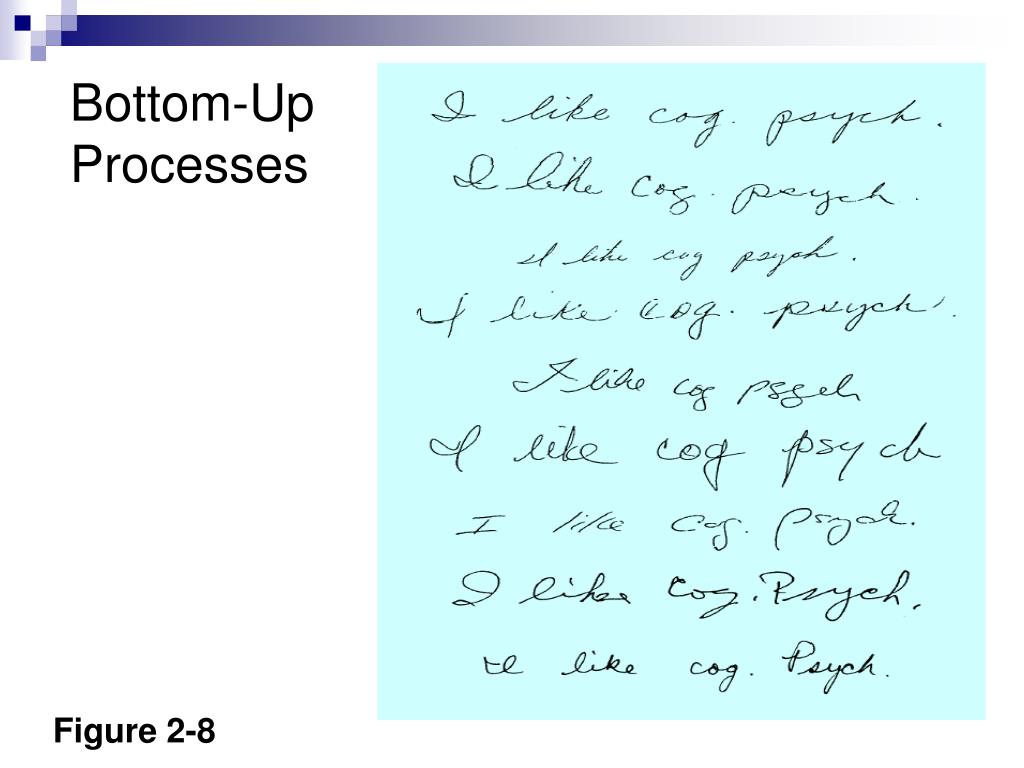 Bottom-Up
Processes
I like cog. psych.
I like cog. psych.
I like cog psych.
I like cog. psych.
I like cog psych
I like cog psych
I like cog. psych.
I like cog. Psych.
I like cog. Psych.
Figure 2-8